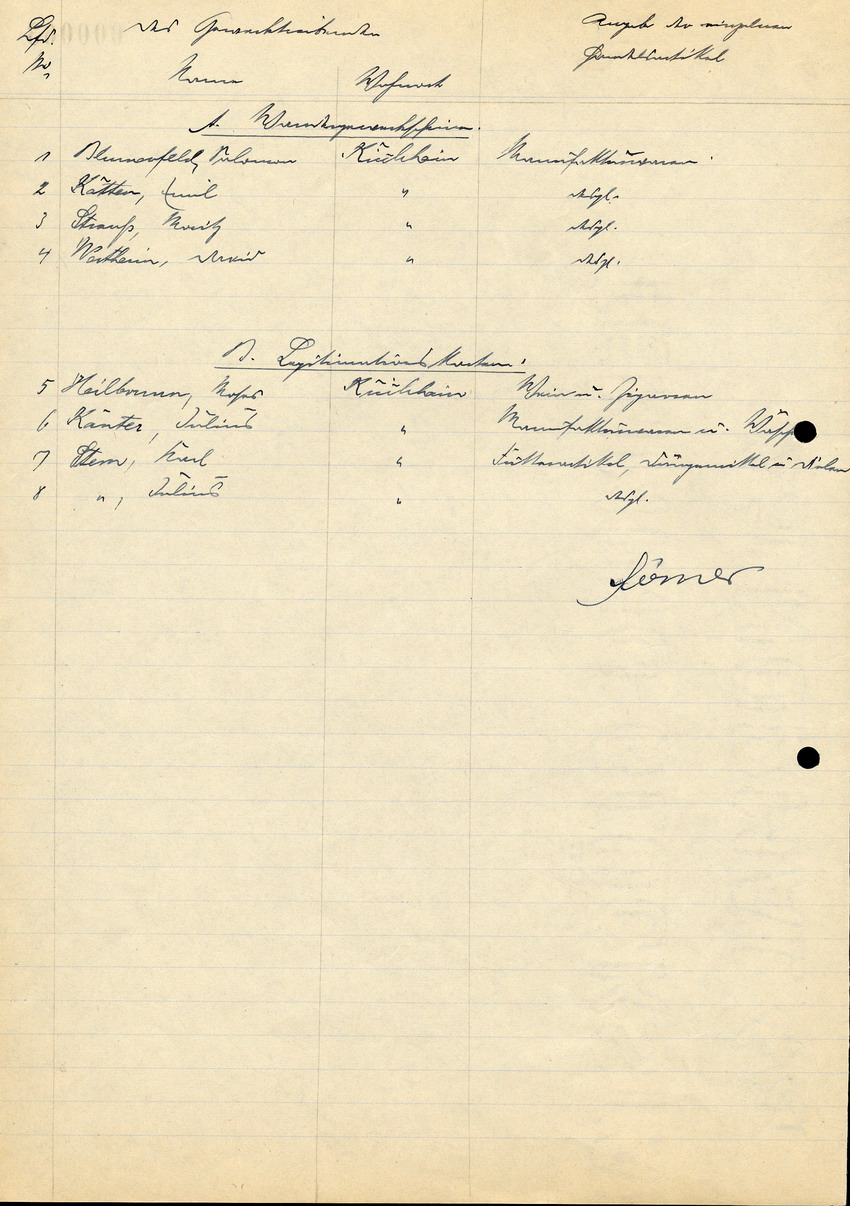 Lfd. des Gewerbetreibenden Angabe der einzelnen
No. Name Wohnort Handelsartikel
A. Wandergewerbescheine.
1 Blumenfeld, Salomon Kirchhain Manufakturwaren.
2 Katten, Emil " dsgl.
3 Strauß, Moritz " dsgl.
4 Wertheim, David " dsgl.
B. Legitimationskarten:
5 Heilbrunn, Moses Kirchhain Wein u. Zigarren
6 Kanter, Julius " Manufakturwaren u. Wäsche
7 Stern, Karl " Futterartikel, Düngemittel u.
8 ", Julius " dsgl.